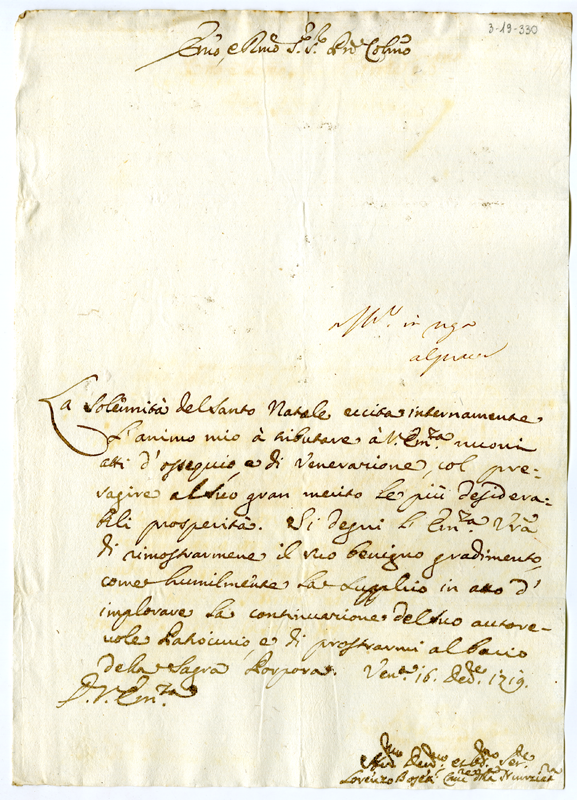 3-19-330
Emo, e Rmo Sr. Sr. Pne Colmo
in
La Solennità del Santo Natale eccita internamente
l'animo mio à tributare à V. Em.za nuoui
atti d'ossequio, e di Venerazione, col pre-
sagire al suo gran merito le più desidera-
bili prosperità. Si degni l' Em.za Vra
di rimostrarmene il suo benigno gradimento
come humilmente la supplico in atto d'
implorare la continuazione del suo autore-
uole Patrocinio, e di prostrarmi al bacio
della Sagra Porpora. Ven.a 16. Dec.re 1719.
D. V. Em.za
Lorenzo